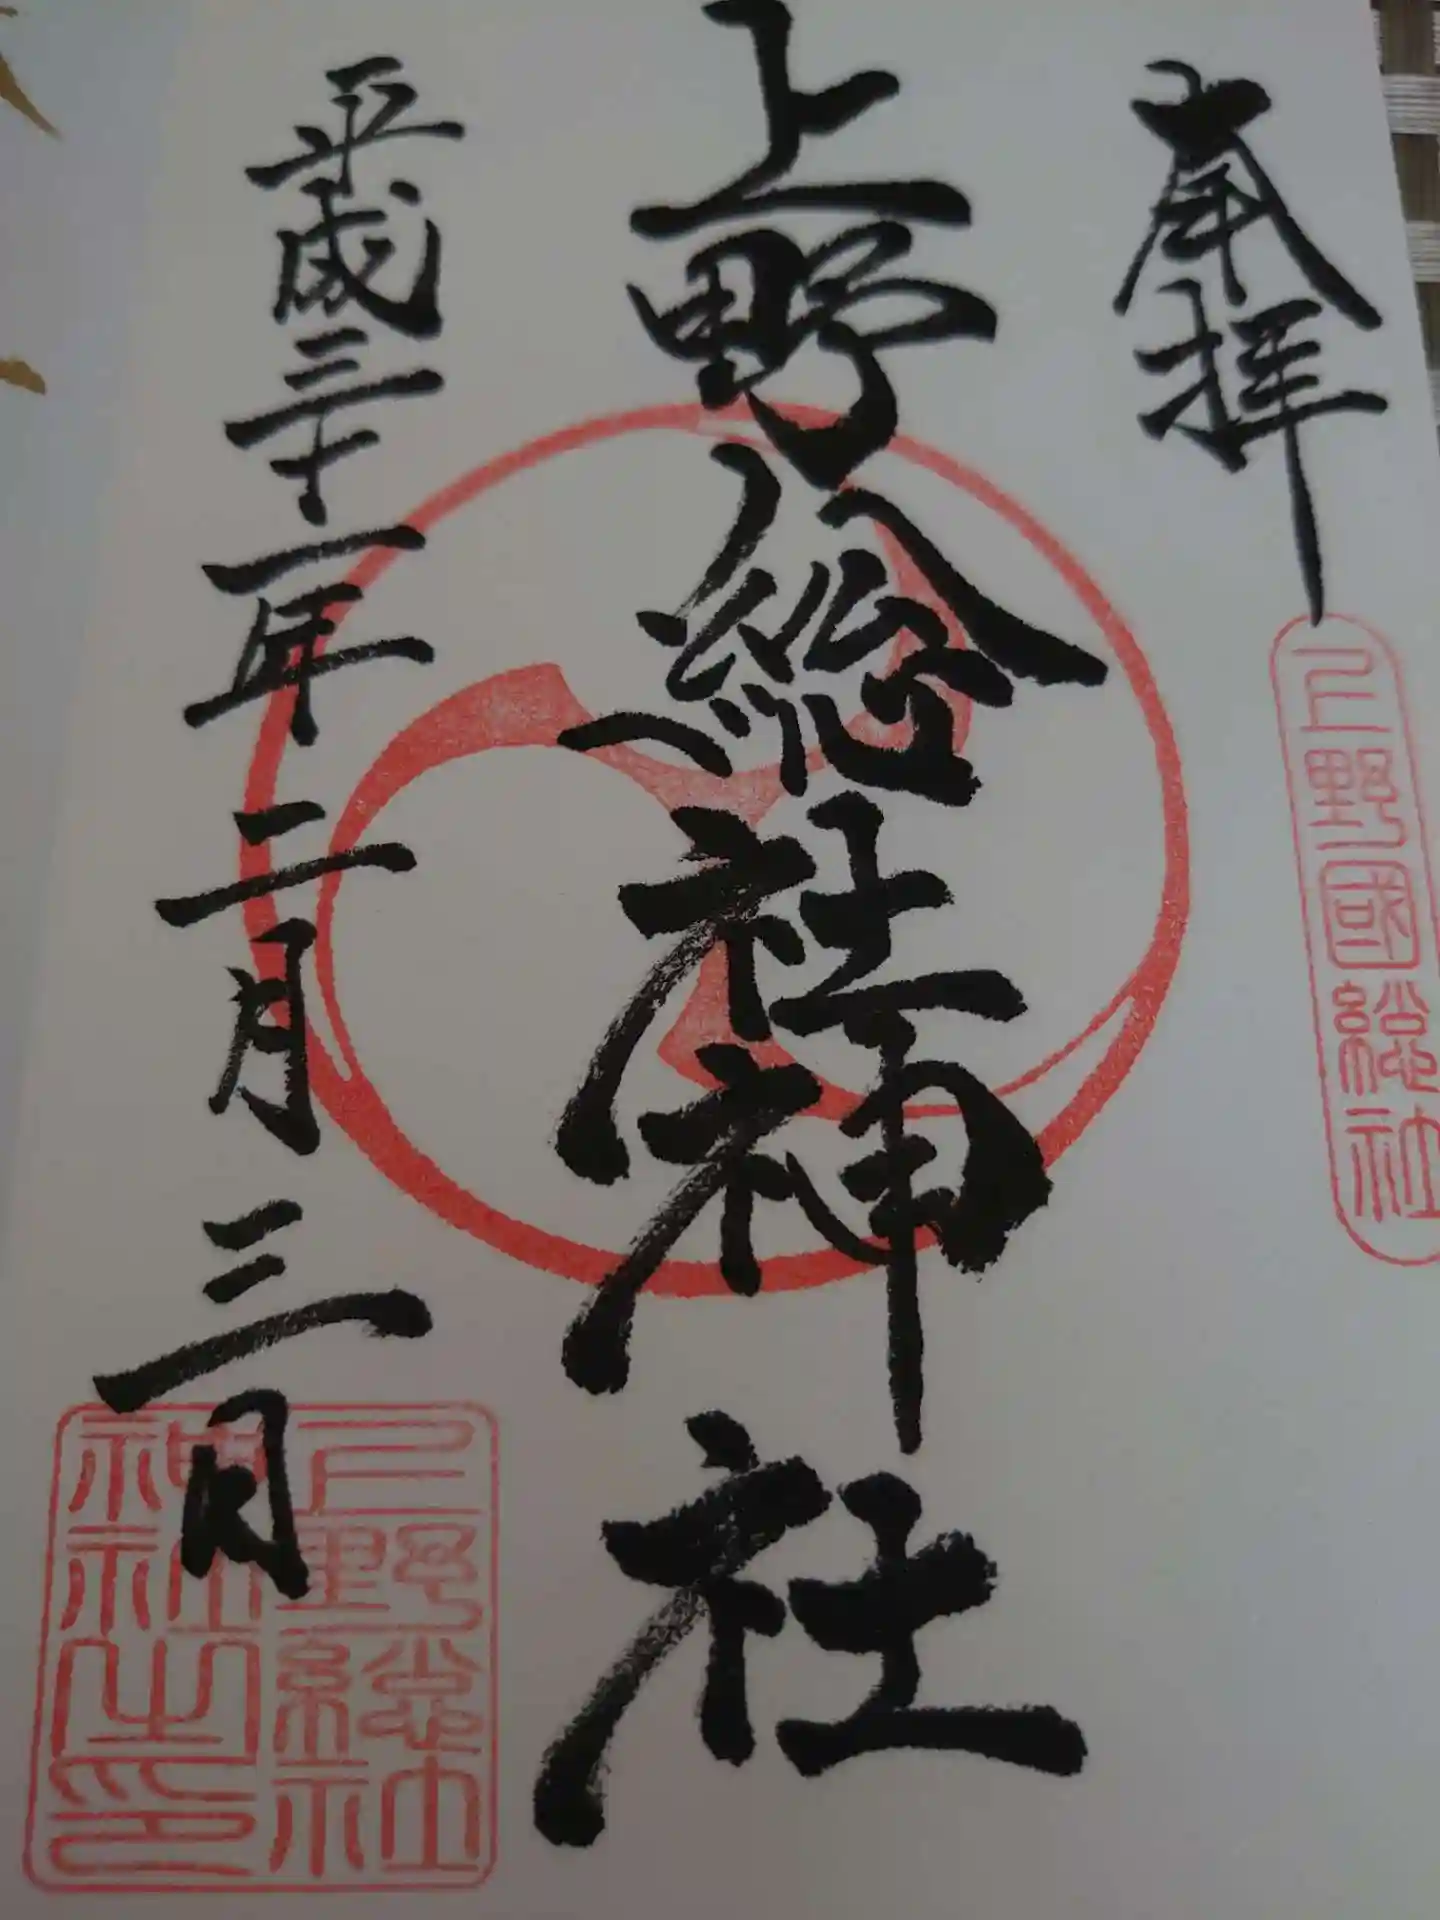 奉拝
上野國総社
上野総社神社
平成三十一年二月三日
上野総社
神社之印